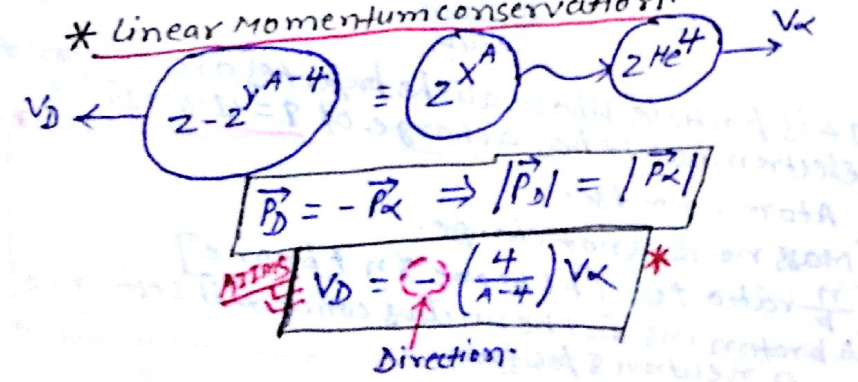 * Linear Momentum conservation.
V_D ← _{Z-2}Y^{A-4} ≡ _ZX^A → _2He^4 → V_α
\vec{P_D} = -\vec{P_α} ⇒ |\vec{P_D}| = |\vec{P_α}|
AIIMS V_D = (-) (4/(A-4)) V_α *
Direction.